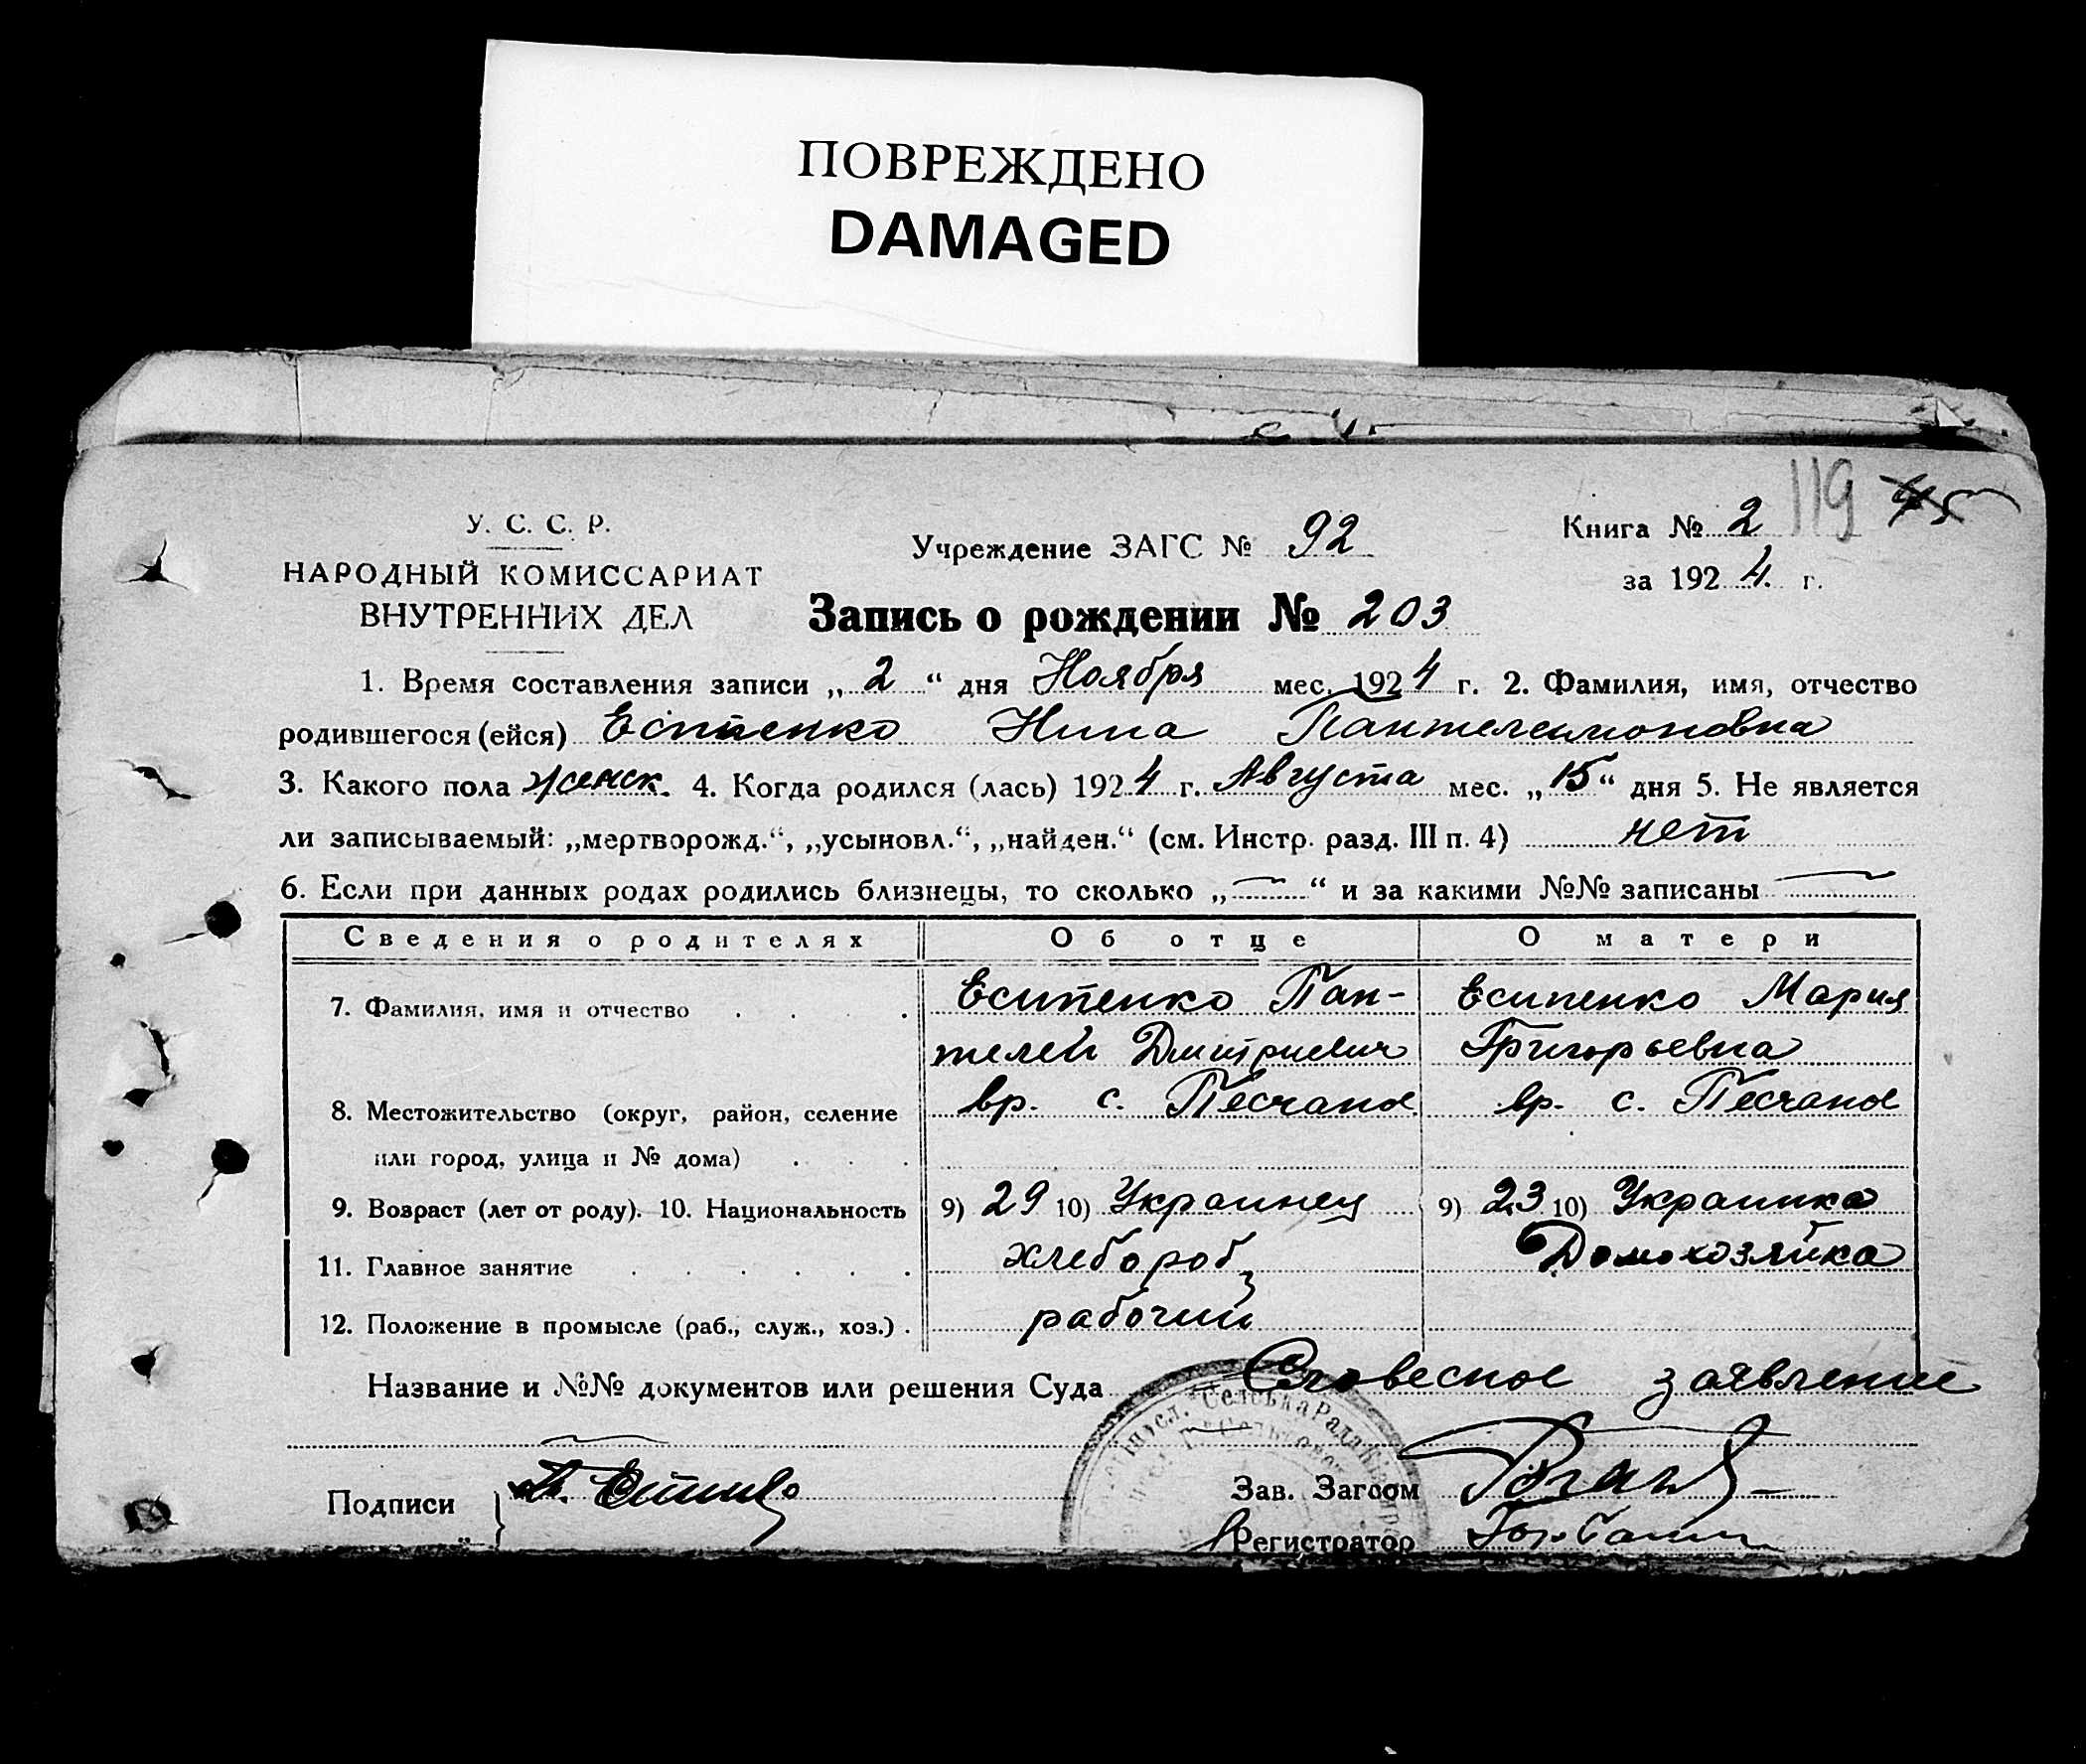 ПОВРЕЖДЕНО
DAMAGED
У. С. С. Р.
НАРОДНЫЙ КОМИССАРИАТ
ВНУТРЕННИХ ДЕЛ
Учреждение ЗАГС № 92
Книга № 2 119
за 1924 г.
Запись о рождении № 203
1. Время составления записи „2“ дня Ноября мес. 1924 г. 2. Фамилия, имя, отчество
родившегося (ейся) Есипенко Нина Пантелеимоновна
3. Какого пола женск. 4. Когда родился (лась) 1924 г. Августа мес. „15“ дня 5. Не является
ли записываемый: „мертворожд.“, „усыновл.“, „найден.“ (см. Инстр. разд. III п. 4) нет
6. Если при данных родах родились близнецы, то сколько „—“ и за какими №№ записаны —
Сведения о родителях Об отце О матери
7. Фамилия, имя и отчество Есипенко Пан- Есипенко Мария
телей Дмитриевич Григорьевна
8. Местожительство (округ, район, селение вр. с. Песчаное вр. с. Песчаное
или город, улица и № дома)
9. Возраст (лет от роду). 10. Национальность 9) 29 10) Украинец 9) 23 10) Украинка
11. Главное занятие хлебороб Домохозяйка
12. Положение в промысле (раб., служ., хоз.) рабочий
Название и №№ документов или решения Суда Словесное заявление
Подписи
Зав. Загсом
Регистратор